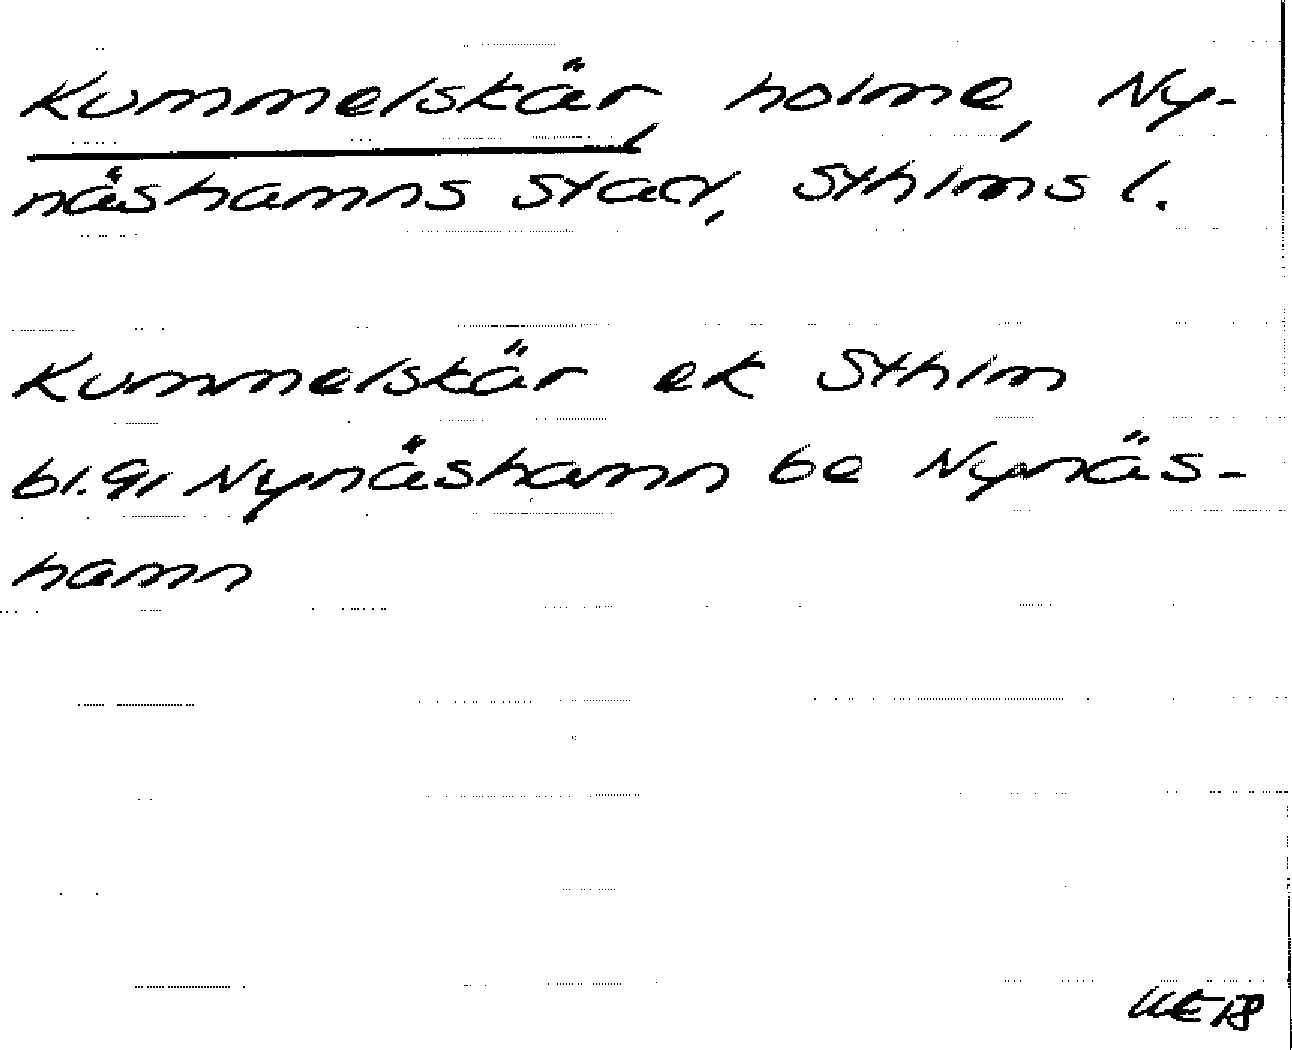 Kummelskär, holme, Ny-
näshamns stad, Sthlms l.
Kummelskär ek Sthlm
bl. 91 Nynäshamn be Nynäs-
hamn